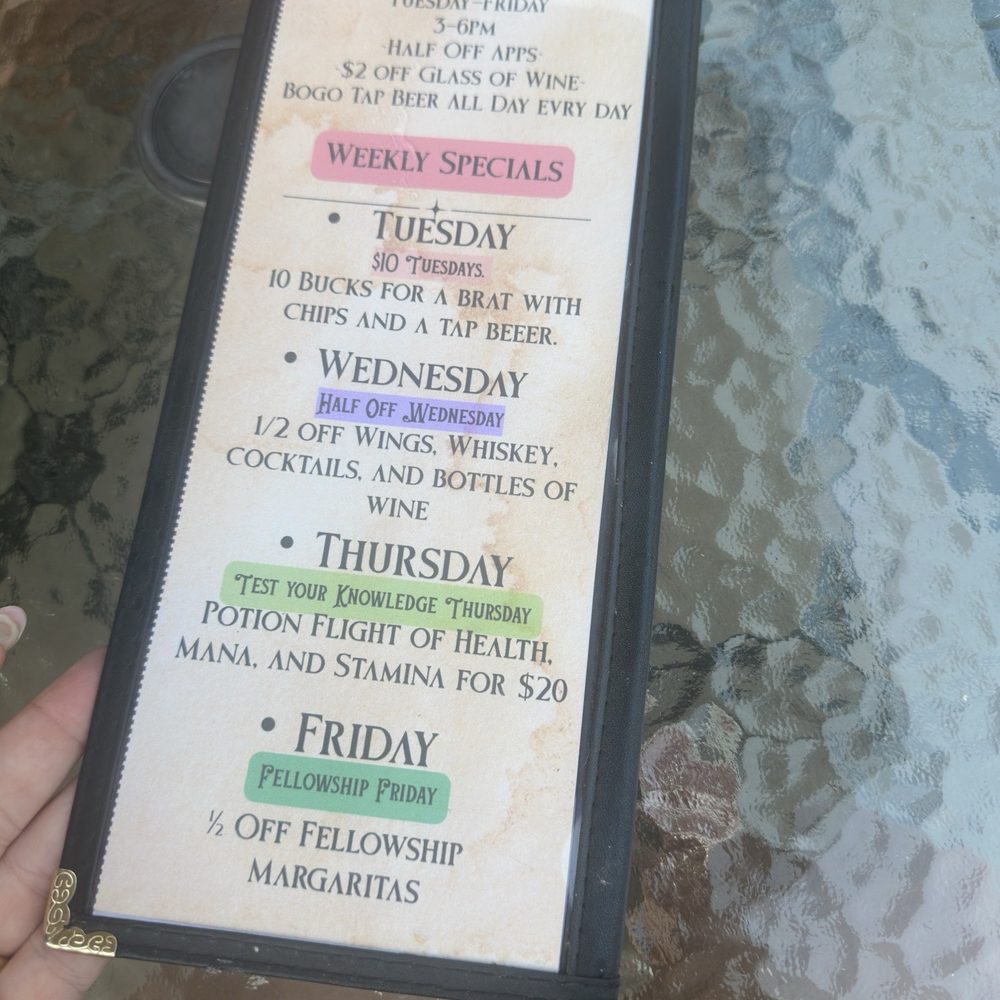 Tuesday-Friday
3-6pm
-Half Off Apps-
-$2 off Glass of Wine-
Bogo Tap Beer all Day evry day
Weekly Specials
• Tuesday
$10 Tuesdays.
10 Bucks for a brat with
chips and a tap beeer.
• Wednesday
Half Off Wednesday
1/2 off Wings, Whiskey,
cocktails, and bottles of
wine
• Thursday
Test your Knowledge Thursday
Potion Flight of Health,
Mana, and Stamina for $20
• Friday
Fellowship Friday
½ Off Fellowship
Margaritas